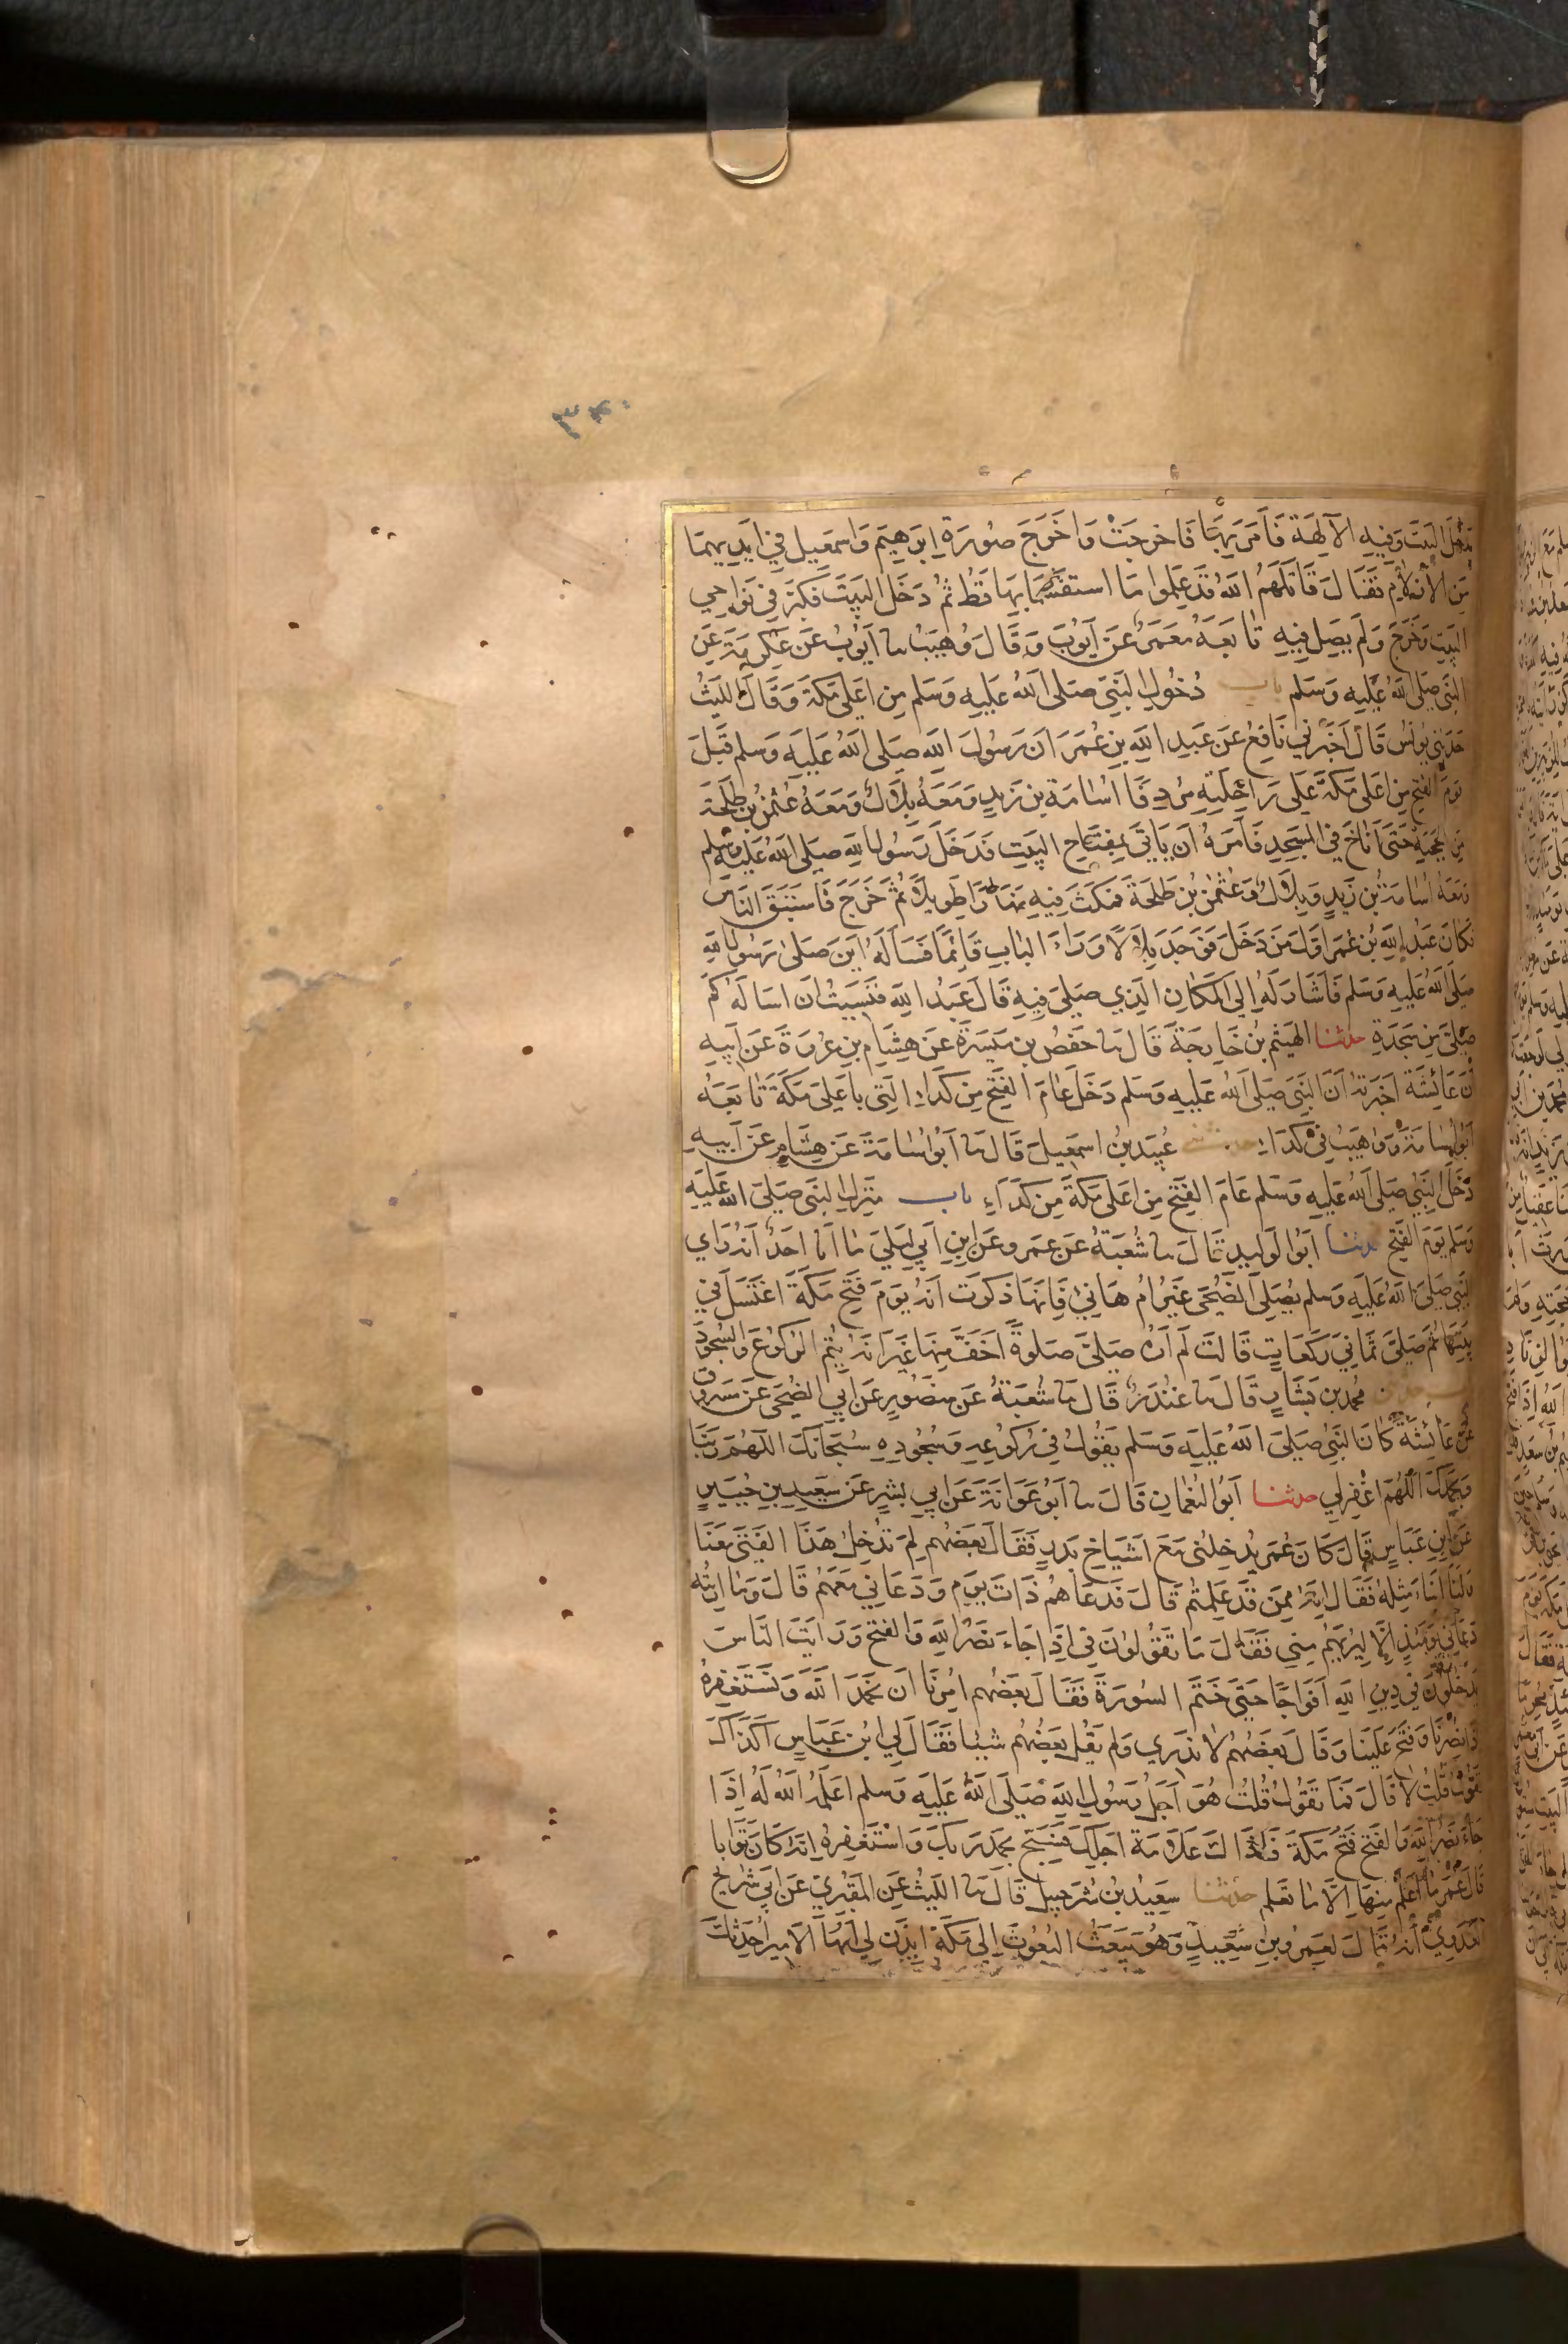 يدخل البيت وفيه الآلهة فامر بها فاخرجت واخرج صورة ابرهيم واسمعيل في ايديهما
من الازلام فقال قاتلهم الله قد علموا ما استقسما بها قط ثم دخل البيت فكبر في نواحي
البيت وخرج ولم يصل فيه تابعه معمر عن ايوب وقال وهيب نا ايوب عن عكرمة عن
النبي صلى الله عليه وسلم باب دخول النبي صلى الله عليه وسلم من اعلى مكة وقال الليث
حدثني يونس قال اخبرني نافع عن عبد الله بن عمر ان رسول الله صلى الله عليه وسلم قبل
يوم الفتح من اعلى مكة على راحلته مردفا اسامة بن زيد ومعه بلال ومعه عثمن بن طلحة
من الحجبة حتى اناخ في المسجد فامره ان ياتي بمفتاح البيت فدخل رسول الله صلى الله عليه وسلم
ومعه اسامة بن زيد وبلال وعثمن بن طلحة فمكث فيه نهارا طويلا ثم خرج فاستبق الناس
فكان عبد الله بن عمر اول من دخل فوجد بلالا وراء الباب قائما فساله اين صلى رسول الله
صلى الله عليه وسلم فاشار له الى المكان الذي صلى فيه قال عبد الله فنسيت ان اساله كم
صلى من سجدة حدثنا الهيثم بن خارجة قال نا حفص بن ميسرة عن هشام بن عروة عن ابيه
ان عائشة اخبرته ان النبي صلى الله عليه وسلم دخل عام الفتح من كداء التي باعلى مكة تابعه
ابو اسامة ووهيب في كداء حدثني عبيد بن اسمعيل قال نا ابو اسامة عن هشام عن ابيه
دخل النبي صلى الله عليه وسلم عام الفتح من اعلى مكة من كداء باب منزل النبي صلى الله عليه
وسلم يوم الفتح حدثنا ابو الوليد قال نا شعبة عن عمرو عن ابن ابي ليلى ما انا احد انه راي
النبي صلى الله عليه وسلم يصلي الضحى غير ام هانئ فانها ذكرت انه يوم فتح مكة اغتسل في
بيتها ثم صلى ثماني ركعات قالت لم اره صلى صلوة اخف منها غير انه يتم الركوع والسجود
باب حدثني محمد بن بشار قال نا غندر قال نا شعبة عن منصور عن ابي الضحى عن مسروق
عن عائشة كان النبي صلى الله عليه وسلم يقول في ركوعه وسجوده سبحانك اللهم ربنا
وبحمدك اللهم اغفر لي حدثنا ابو النعمان قال نا ابو عوانة عن ابي بشر عن سعيد بن جبير
عن ابن عباس قال كان عمر يدخلني مع اشياخ بدر فقال بعضهم لم تدخل هذا الفتى معنا
ولنا ابناء مثله فقال انه ممن قد علمتم قال فدعاهم ذات يوم ودعاني معهم قال وما اريته
دعاني يومئذ الا ليريهم مني فقال ما تقولون في اذا جاء نصر الله والفتح ورايت الناس
يدخلون في دين الله افواجا حتى ختم السورة فقال بعضهم امرنا ان نحمد الله ونستغفره
اذا نصرنا وفتح علينا وقال بعضهم لا ندري ولم يقل بعضهم شيئا فقال لي ابن عباس اكذاك
تقول قلت لا قال فما تقول قلت هو اجل رسول الله صلى الله عليه وسلم اعلمه الله له اذا
جاء نصر الله والفتح فتح مكة فذاك علامة اجلك فسبح بحمد ربك واستغفره انه كان توابا
قال عمر ما اعلم منها الا ما تعلم حدثنا سعيد بن شرحبيل قال نا الليث عن المقبري عن ابي شريح
العدوي انه قال لعمرو بن سعيد وهو يبعث البعوث الى مكة ايذن لي ايها الامير احدثك